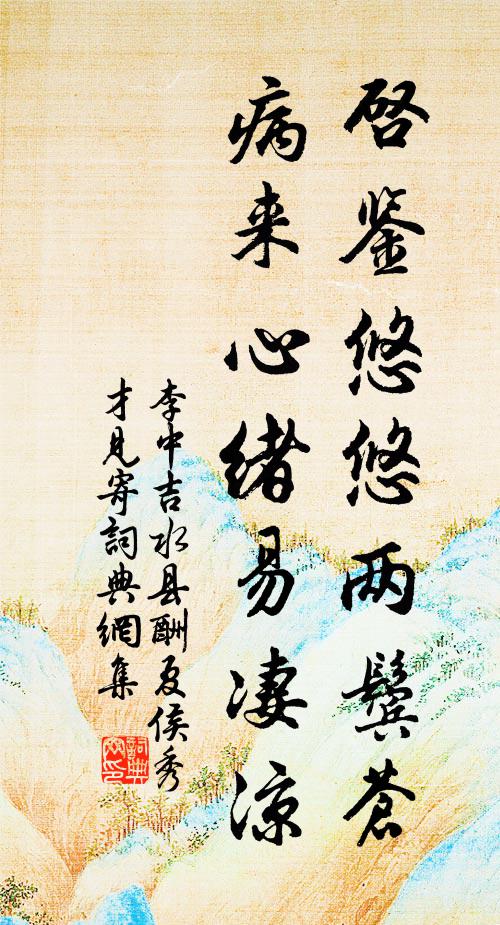 启鉴悠悠两鬓苍
病来心绪易凄凉
李中吉水县酬夏侯秀
才见寄词典网集